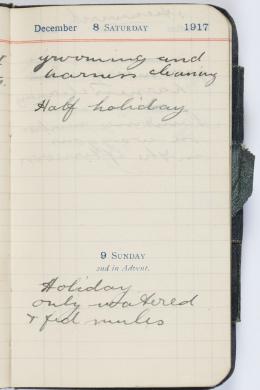 December 8 SATURDAY 1917
grooming and
harness cleaning
Half holiday
9 SUNDAY
2nd in Advent.
Holiday
only watered
& fed mules